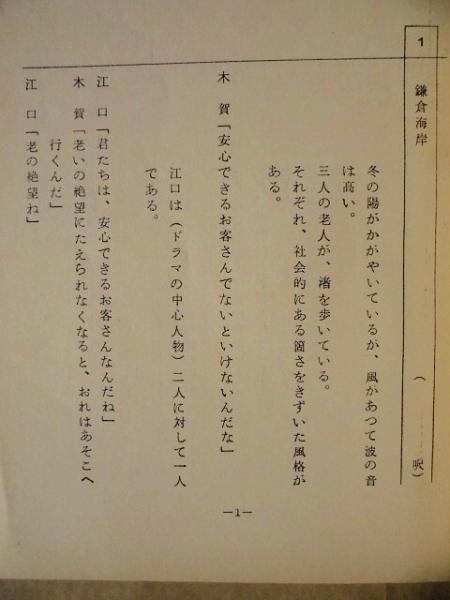 1
鎌倉海岸
( ...... 呎)
冬の陽がかがやいているが、風があつて波の音
は高い。
三人の老人が、渚を歩いている。
それぞれ、社会的にある箇さをきずいた風格が
ある。
木 賀「安心できるお客さんでないといけないんだな」
江口は(ドラマの中心人物)二人に対して一人
である。
江 口「君たちは、安心できるお客さんなんだね」
木 賀「老いの絶望にたえられなくなると、おれはあそこへ
行くんだ」
江 口「老の絶望ね」
—1—